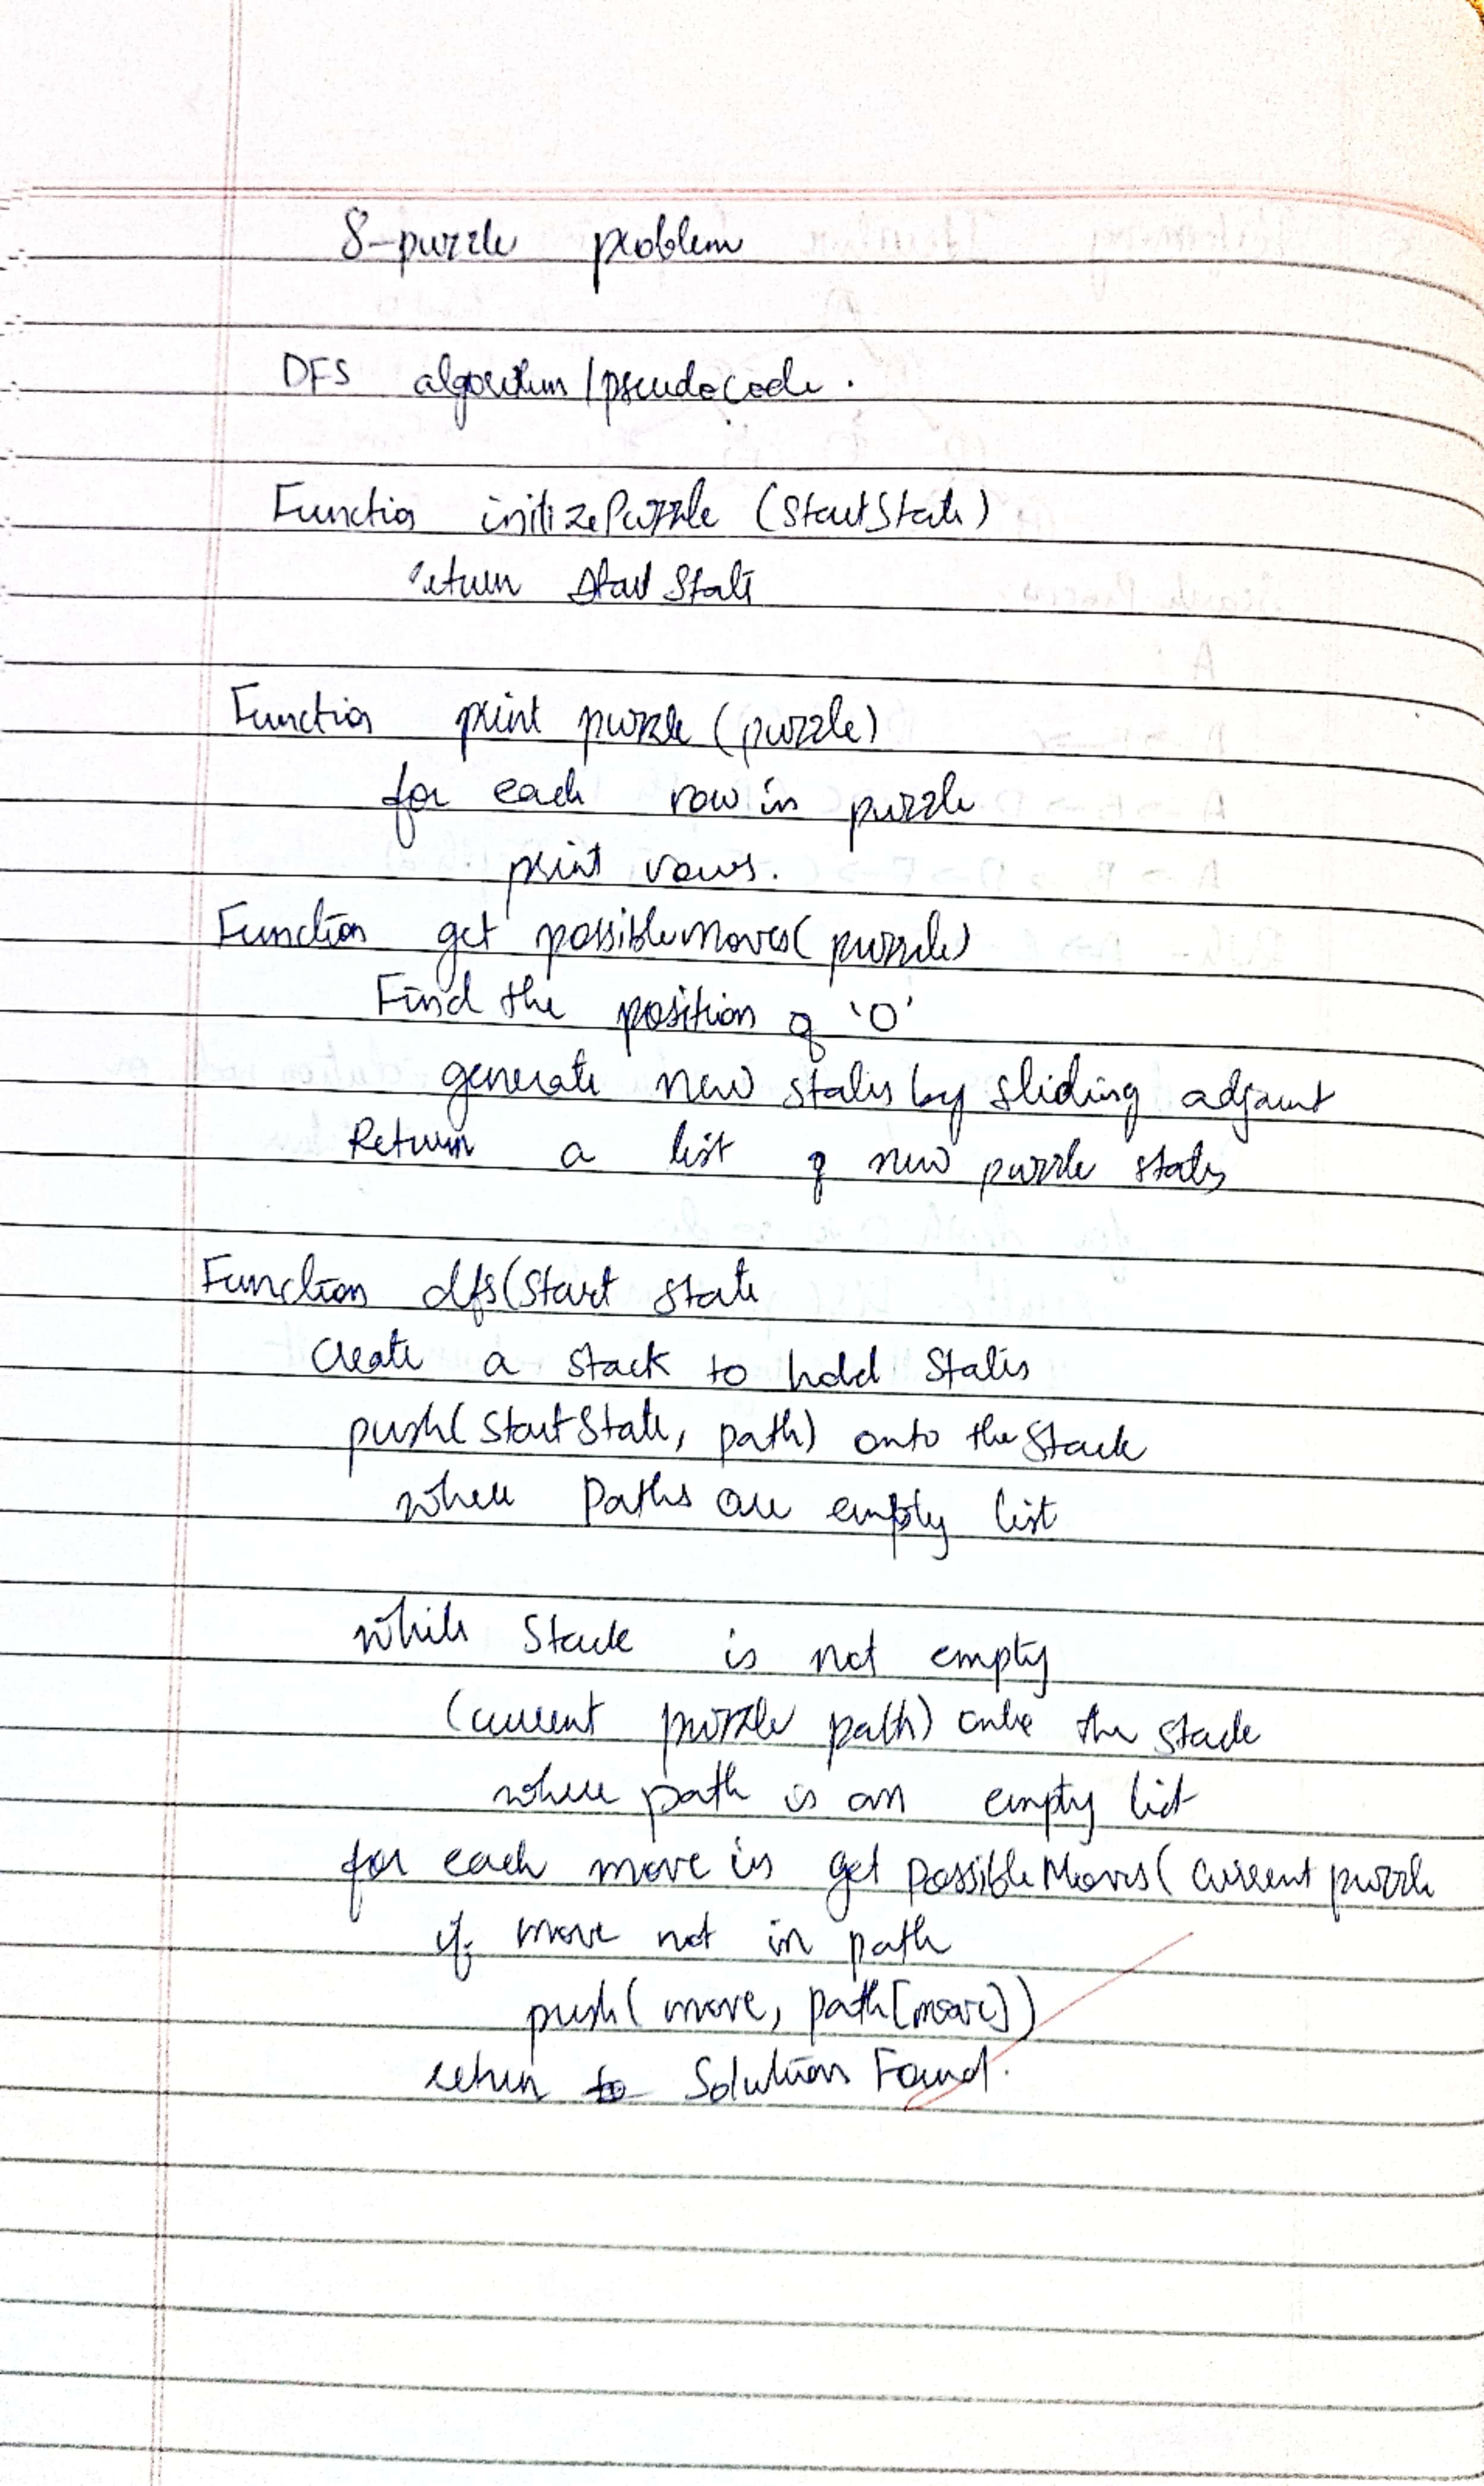 8-puzzle problem
DFS algorithm/pseudocode.
Function initizePuzzle (StartState)
return Start State
Function print puzzle (puzzle)
for each row in puzzle
print rows.
Function get possibleMoves( puzzle)
Find the position of '0'
generate new states by sliding adjacent
Return a list of new puzzle states
Function dfs(Start state
Create a stack to hold States
push( StartState, path) onto the Stack
where Paths are empty list
while Stack is not empty
(current puzzle path) the stack
where path is an empty list
for each move in get possibleMoves( Current puzzle
if move not in path
push( move, path[move])
return to Solution Found.